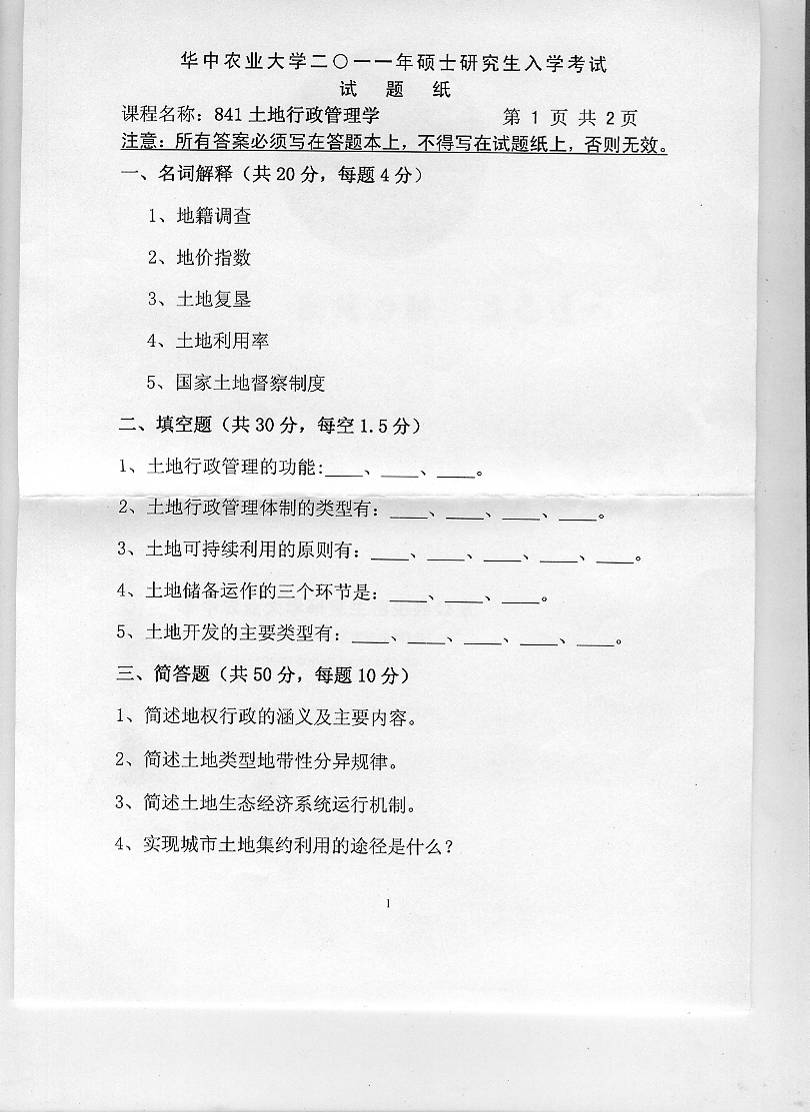 华中农业大学二〇一一年硕士研究生入学考试
试 题 纸
课程名称：841 土地行政管理学 第 1 页 共 2 页
注意：所有答案必须写在答题本上，不得写在试题纸上，否则无效。
一、名词解释（共 20 分，每题 4 分）
1、地籍调查
2、地价指数
3、土地复垦
4、土地利用率
5、国家土地督察制度
二、填空题（共 30 分，每空 1.5 分）
1、土地行政管理的功能:____、____、____。
2、土地行政管理体制的类型有：____、____、____、____。
3、土地可持续利用的原则有：____、____、____、____、____。
4、土地储备运作的三个环节是：____、____、____。
5、土地开发的主要类型有：____、____、____、____、____。
三、简答题（共 50 分，每题 10 分）
1、简述地权行政的涵义及主要内容。
2、简述土地类型地带性分异规律。
3、简述土地生态经济系统运行机制。
4、实现城市土地集约利用的途径是什么？
1